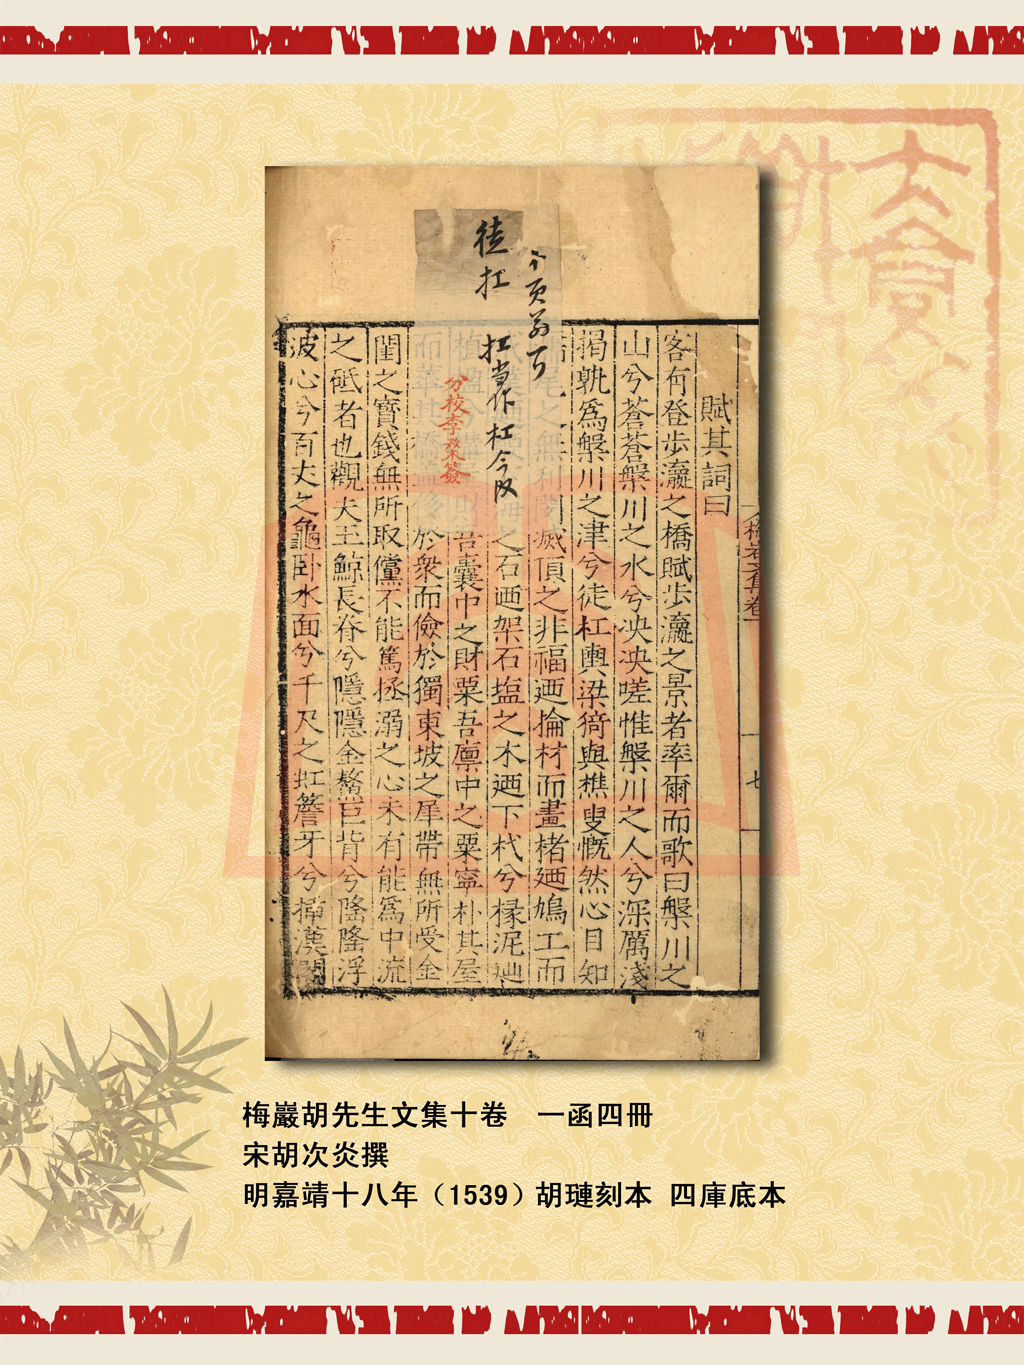 賦其詞曰
客有登步瀛之橋賦步瀛之景者率爾而歌曰槃川之
山兮蒼蒼槃川之水兮泱泱嗟惟槃川之人兮深厲淺
揭孰為槃川之津兮徒杠輿梁猗與樵叟慨然心目知
之無利
滅頂之非福廼掄材而畫楮廼鳩工而
之石廼架石塩之木廼下杙兮椽泥
吾囊中之財粟吾廩中之粟寧朴其屋
於衆而儉於獨東坡之犀帶無所受金
閨之寶錢無所取儻不能篤拯溺之心未有能為中流
之砥者也觀夫玉鯨長脊兮隱隱金鰲巨背兮隆隆浮
波心兮百丈之龜卧水面兮千尺之虹簷牙兮掃漢
徒杠
杠當作杠今改
分校李槃簽
梅巖胡先生文集十卷 一函四冊
宋胡次炎撰
明嘉靖十八年（1539）胡璉刻本 四庫底本